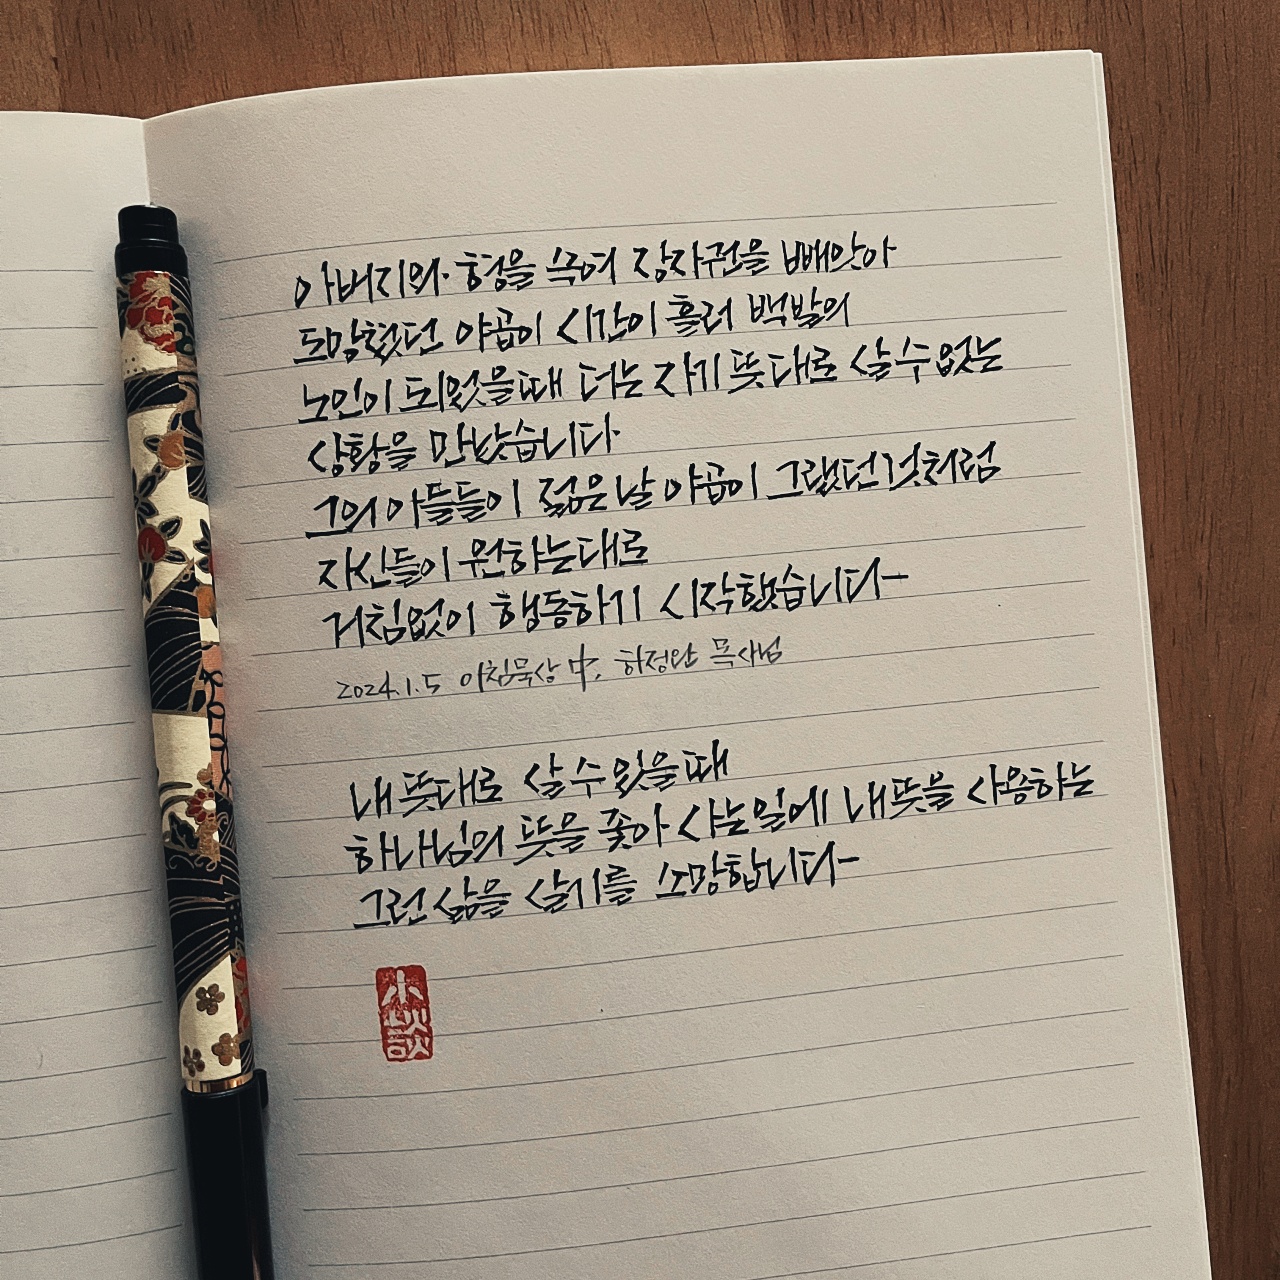 아버지와 형을 속여 장자권을 빼앗아
도망쳤던 야곱이 시간이 흘러 백발의
노인이 되었을때 더는 자기 뜻대로 살 수 없는
상황을 만났습니다
그의 아들들이 젊은날 야곱이 그랬던 것처럼
자신들이 원하는대로
거침없이 행동하기 시작했습니다-
2024.1.5 아침묵상 中, 하정완 목사님
내 뜻대로 살 수 있을때
하나님의 뜻을 좇아 사는 일에 내 뜻을 사용하는
그런 삶을 살기를 소망합니다-
小